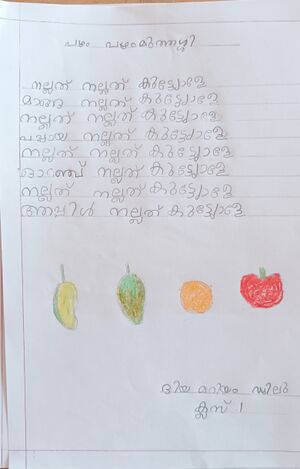 പഴം പഴം
നല്ലത് നല്ലത് കുട്ട്യോളേ
മാങ്ങ നല്ലത് കുട്ട്യോളേ
നല്ലത് നല്ലത് കുട്ട്യോളേ
പപ്പായ നല്ലത് കുട്ട്യോളേ
നല്ലത് നല്ലത് കുട്ട്യോളേ
ഓറഞ്ച് നല്ലത് കുട്ട്യോളേ
നല്ലത് നല്ലത് കുട്ട്യോളേ
ആപ്പിൾ നല്ലത് കുട്ട്യോളേ
ദിയ മറിയം
ക്ലസ് 1